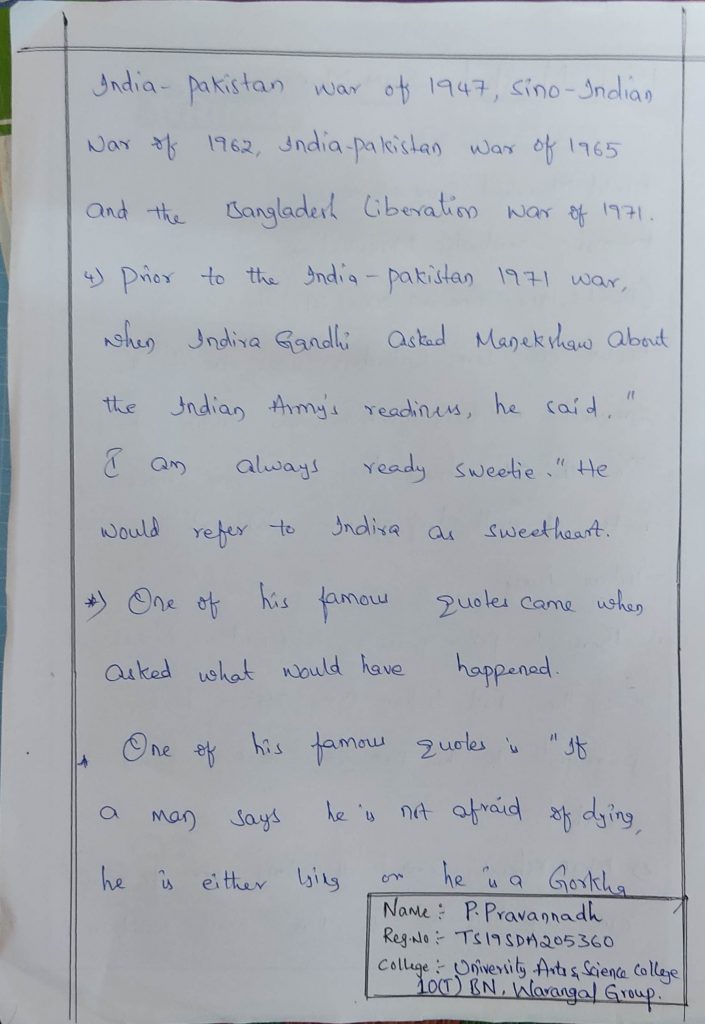 India - pakistan war of 1947, Sino-Indian
War of 1962, India-pakistan war of 1965
and the Bangladesh Liberation war of 1971.
4) Prior to the India - pakistan 1971 war,
when Indira Gandhi asked Manekshaw about
the Indian Army's readiness, he said. "
I am always ready sweetie." He
would refer to Indira as sweetheart.
*) One of his famous quotes came when
asked what would have happened.
* One of his famous quotes is "If
a man says he is not afraid of dying,
he is either lying or he is a Gorkha
Name :- P. Pravannadh
Reg.No :- TS19SDA205360
College :- University Arts & Science College
10(T) BN, Warangal Group.